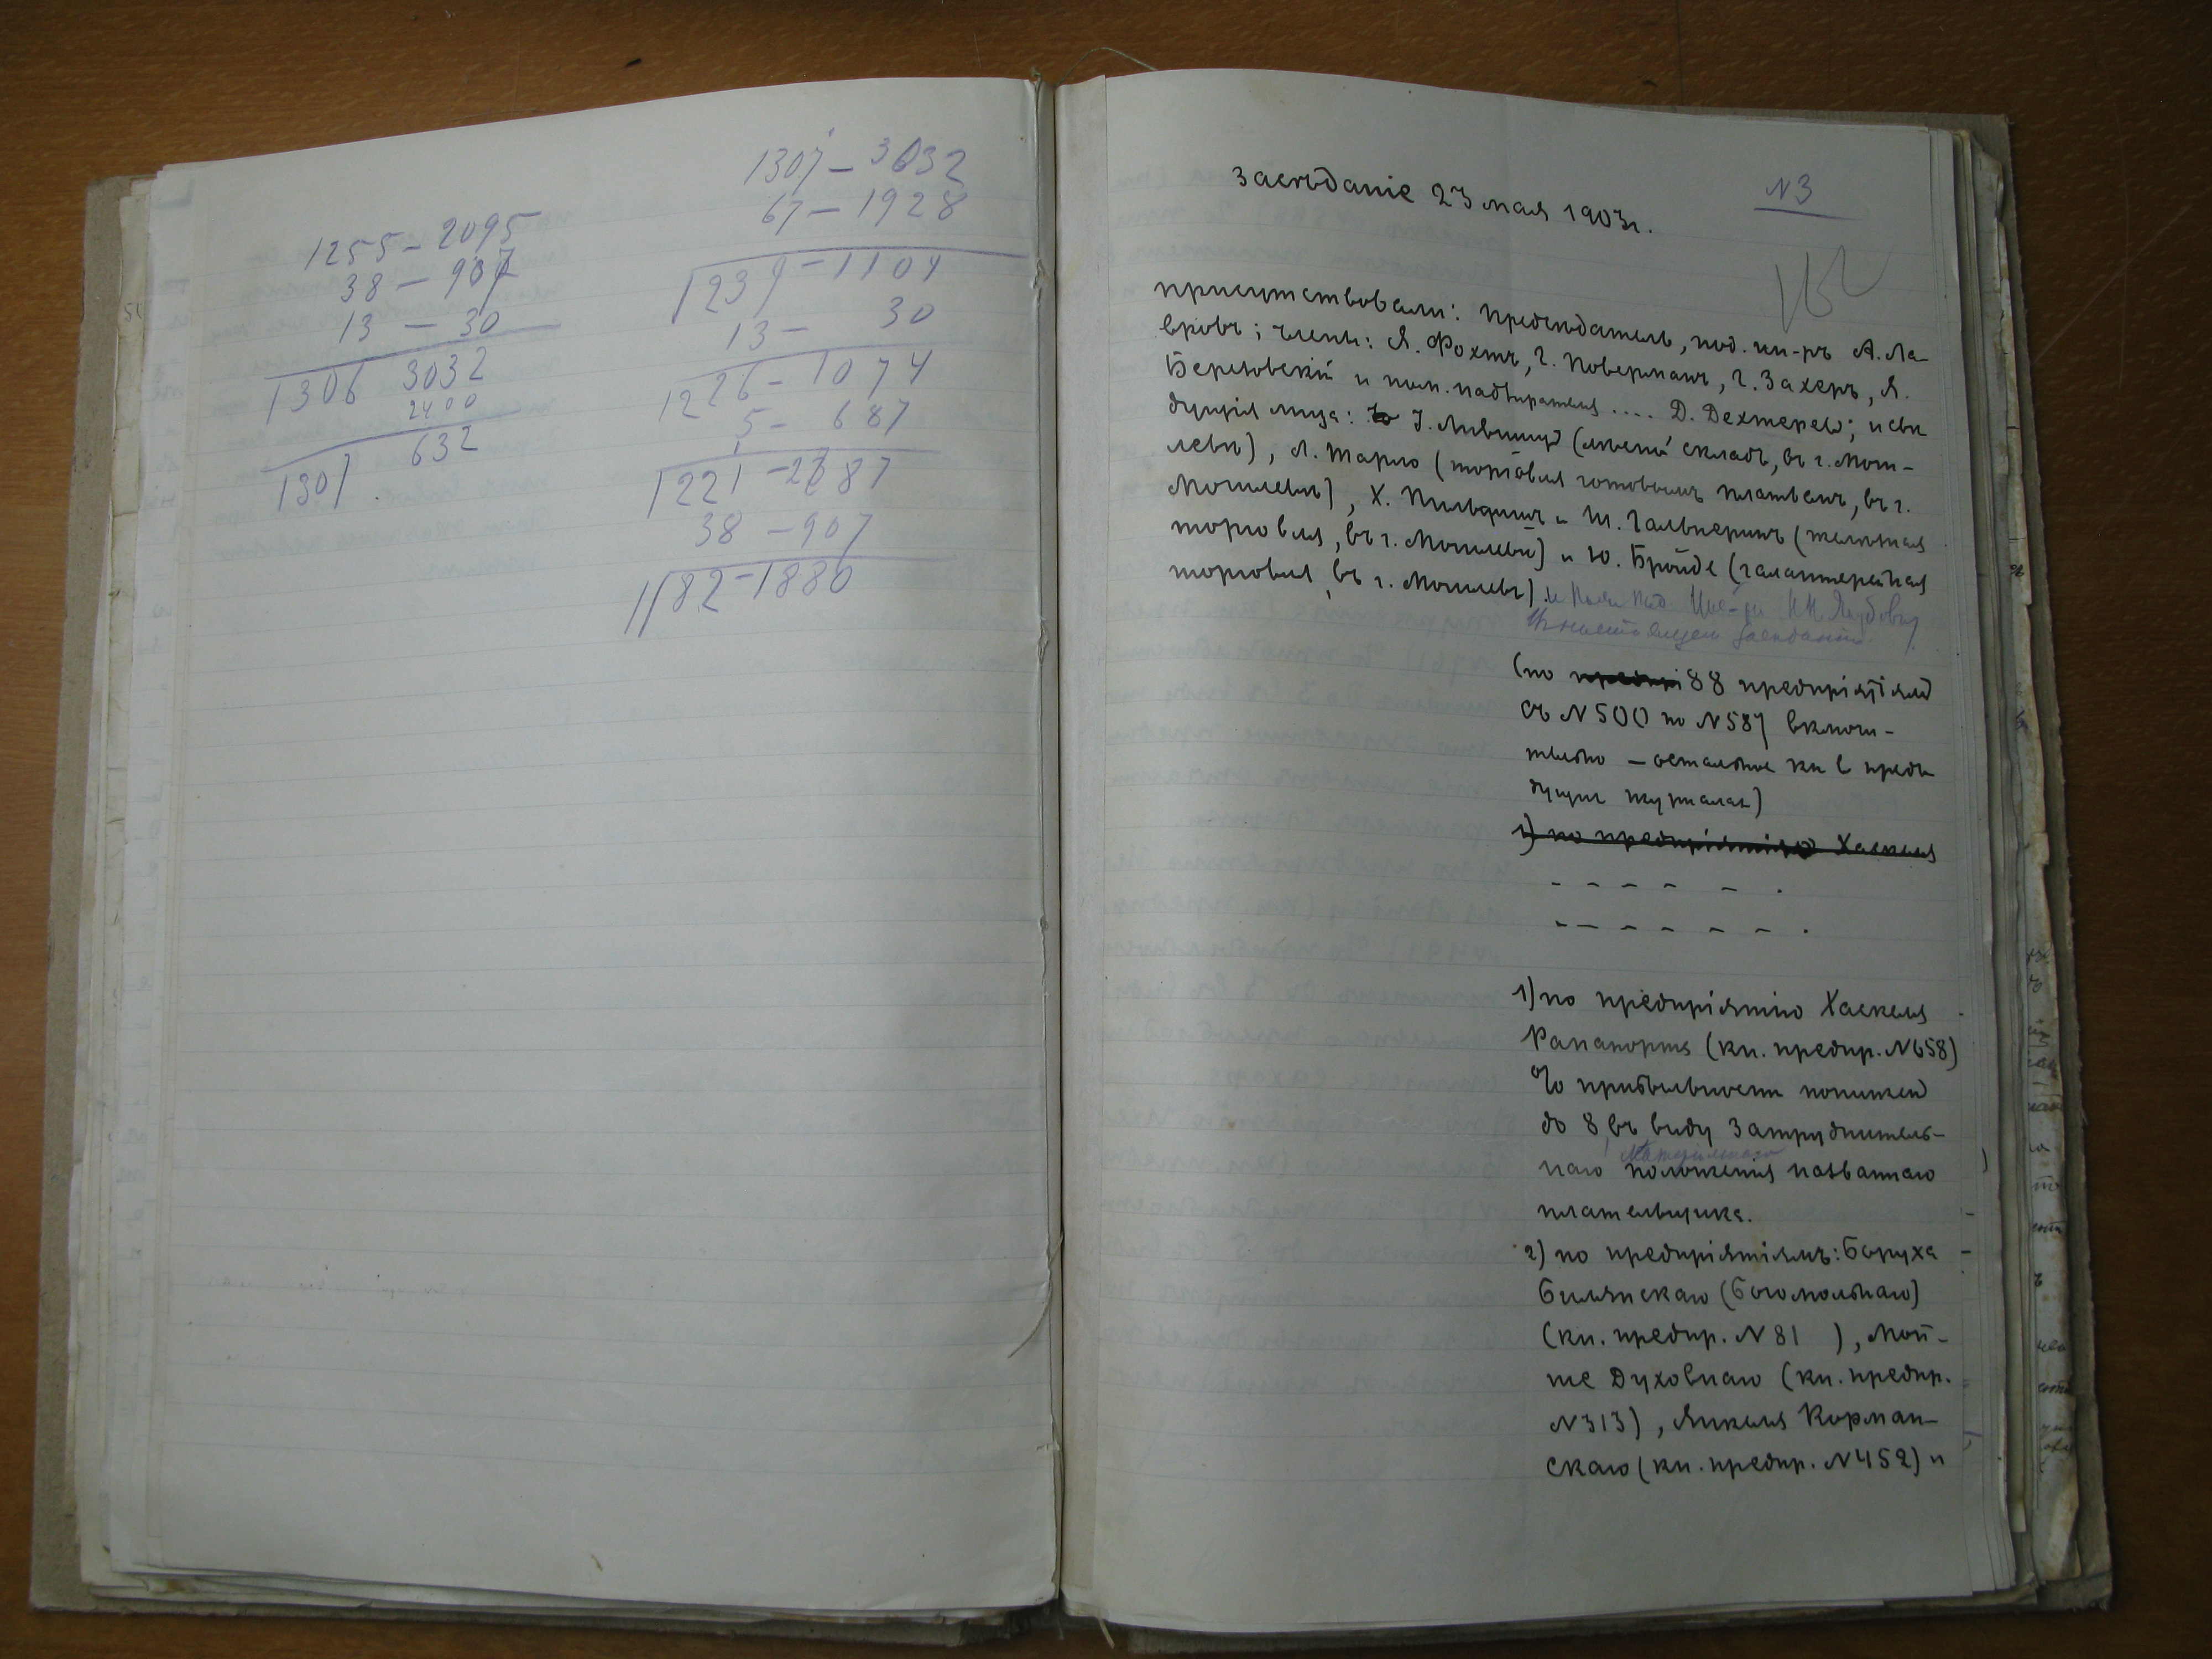 1255 - 2095
38 - 907
13 - 30
1306 3032
2400
1307 632
1307 - 3032
67 - 1928
1239 - 1104
13 - 30
1226 - 1074
5 - 687
1221 - 2787
38 - 907
1182 - 1880
Засѣданіе 23 мая 1903 г.
N 3
присутствовали: предсѣдатель, под. ин-ръ А. Ла-
вровъ; члены: Я. Фохтъ, Г. Поверманъ, Г. Захеръ, Я.
Березовскій и пом. надзирателя .... Д. Дехтерев; и свѣ
дущія лица: I. Лившиц (лѣсной складъ, въ г. Моги-
левѣ), Л. Тарло (торговля готовымъ платьемъ, въ г.
Могилевѣ), Х. Пильдишъ и Ш. Гальперинъ (желѣзная
торговля, въ г. Могилевѣ) и Ю. Бройде (галантерейная
торговля, въ г. Могилевѣ).
(по 88 предпріятіям
съ N 500 по N 587 включи-
тельно – остальные въ преды
дущих журналах)
1) по предпріятію Хаскеля
1) по предпріятію Хаскеля
Рапапорта (кн. предпр. N 658)
% прибыльности понижен
до 8, въ виду затруднитель-
наго матеріальнаго положенія названнаго
плательщика.
2) по предпріятіямъ: Боруха
Билянскаго (Богомольнаго)
(кн. предпр. N 81 ), Мот-
те Духовнаго (кн. предпр.
N 313), Янкеля Корман-
скаго (кн. предпр. N 452) и